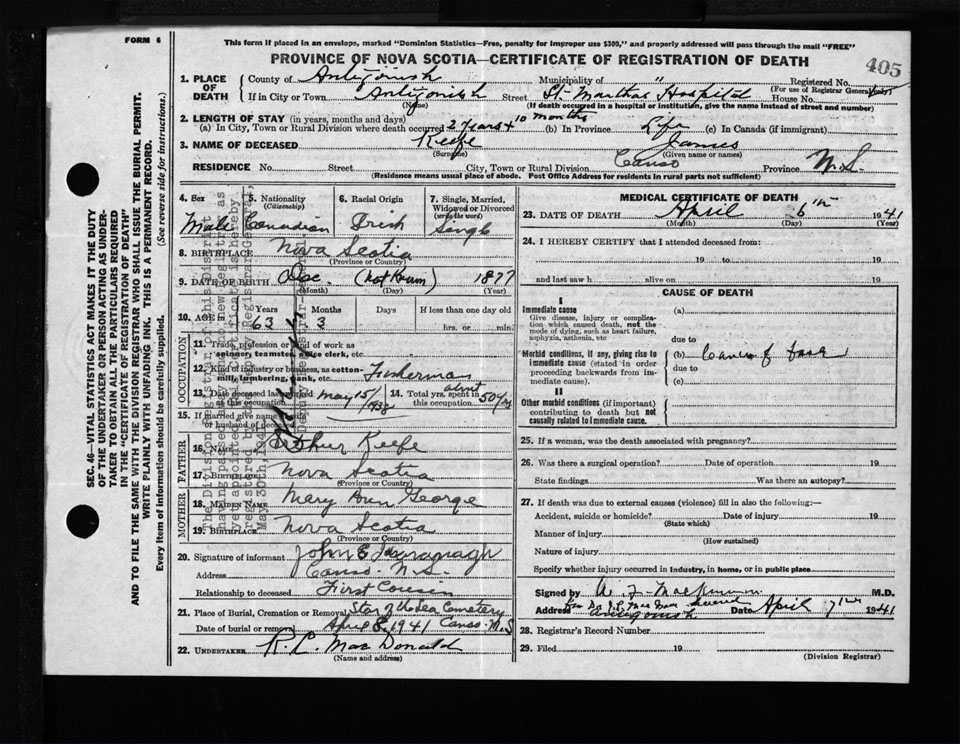 FORM 6
This form if placed in an envelope, marked "Dominion Statistics—Free, penalty for improper use $300," and properly addressed will pass through the mail "FREE"
PROVINCE OF NOVA SCOTIA—CERTIFICATE OF REGISTRATION OF DEATH
405
1. PLACE OF DEATH
County of Antigonish Municipality of " Registered No.
(For use of Registrar General only)
If in City or Town Antigonish Street St. Marthas Hospital House No.
(Name) (If death occurred in a hospital or institution, give the name instead of street and number)
2. LENGTH OF STAY (in years, months and days)
(a) In City, Town or Rural Division where death occurred 2 years + 10 months (b) In Province Life (c) In Canada (if immigrant)
3. NAME OF DECEASED Keefe James
(Surname) (Given name or names)
RESIDENCE No. Street City, Town or Rural Division Canso Province N.S.
(Residence means usual place of abode. Post Office Address for residents in rural parts not sufficient)
4. Sex Male
5. Nationality (Citizenship) Canadian
6. Racial Origin Irish
7. Single, Married, Widowed or Divorced (write the word) Single
8. BIRTHPLACE Nova Scotia
(Province or Country)
9. DATE OF BIRTH Dec. (not known) 1877
(Month) (Day) (Year)
10. AGE Years Months Days If less than one day old
63 3 hrs. or min.
OCCUPATION
11. Trade, profession or kind of work as spinner, teamster, office clerk, etc.
12. Kind of industry or business, as cotton-mill, lumbering, bank, etc. Fisherman
13. Date deceased last worked at this occupation May 15/1938
14. Total yrs. spent in this occupation about 50 yrs
15. If married give name of wife or husband of deceased
FATHER
16. Name Arthur Keefe
17. Birthplace Nova Scotia
(Province or Country)
MOTHER
18. MAIDEN NAME Mary Ann George
19. BIRTHPLACE Nova Scotia
(Province or Country)
20. Signature of informant John E Kavanagh
Address Canso - N.S.
Relationship to deceased First Cousin
21. Place of Burial, Cremation or Removal Star of the Sea Cemetery
Date of burial or removal April 8, 1941 Canso N.S
22. UNDERTAKER MacDonald
(Name and address)
MEDICAL CERTIFICATE OF DEATH
23. DATE OF DEATH April 6th 1941
(Month) (Day) (Year)
24. I HEREBY CERTIFY that I attended deceased from:
19 to 19
and last saw h alive on 19
CAUSE OF DEATH
I
Immediate cause
Give disease, injury or complication which caused death, not the mode of dying, such as heart failure, asphyxia, asthenia, etc
(a)
due to
Morbid conditions, if any, giving rise to immediate cause (stated in order proceeding backwards from immediate cause).
(b) Cancer of face
due to
(c)
II
Other morbid conditions (if important) contributing to death but not causally related to immediate cause.
25. If a woman, was the death associated with pregnancy?
26. Was there a surgical operation? Date of operation 19
State findings Was there an autopsy?
27. If death was due to external causes (violence) fill in also the following:—
Accident, suicide or homicide? Date of injury 19
(State which)
Manner of injury
(How sustained)
Nature of injury
Specify whether injury occurred in industry, in home, or in public place
Signed by M.D.
Address Antigonish Date April 7th 1941
28. Registrar's Record Number
29. Filed 19
(Division Registrar)
SEC. 46—VITAL STATISTICS ACT MAKES IT THE DUTY
OF THE UNDERTAKER OR PERSON ACTING AS UNDER-
TAKER TO OBTAIN ALL THE PARTICULARS REQUIRED
IN THE "CERTIFICATE OF REGISTRATION OF DEATH"
AND TO FILE THE SAME WITH THE DIVISION REGISTRAR WHO SHALL ISSUE THE BURIAL PERMIT.
WRITE PLAINLY WITH UNFADING INK. THIS IS A PERMANENT RECORD.
Every item of information should be carefully supplied. (See reverse side for instructions.)